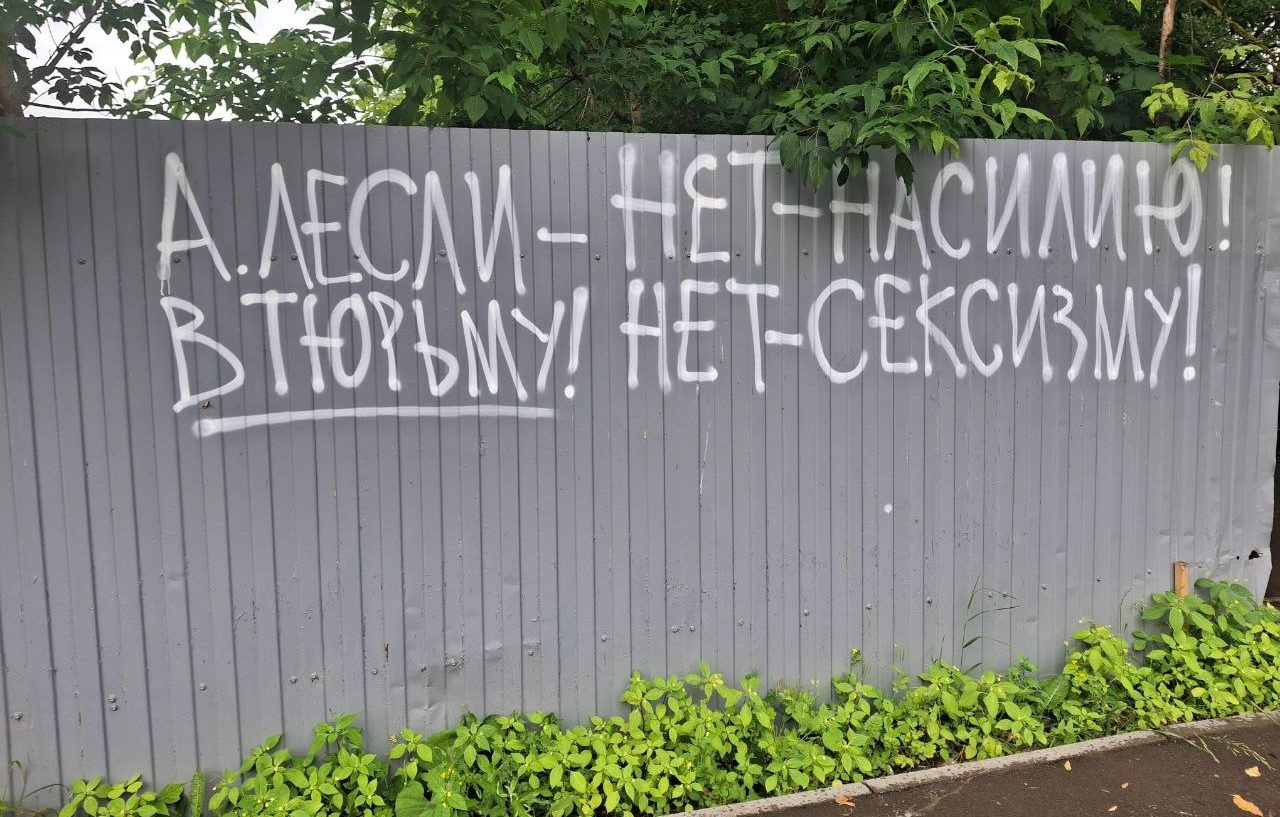 А. ЛЕСЛИ - НЕТ - НАСИЛИЮ!
В ТЮРЬМУ! НЕТ - СЕКСИЗМУ!